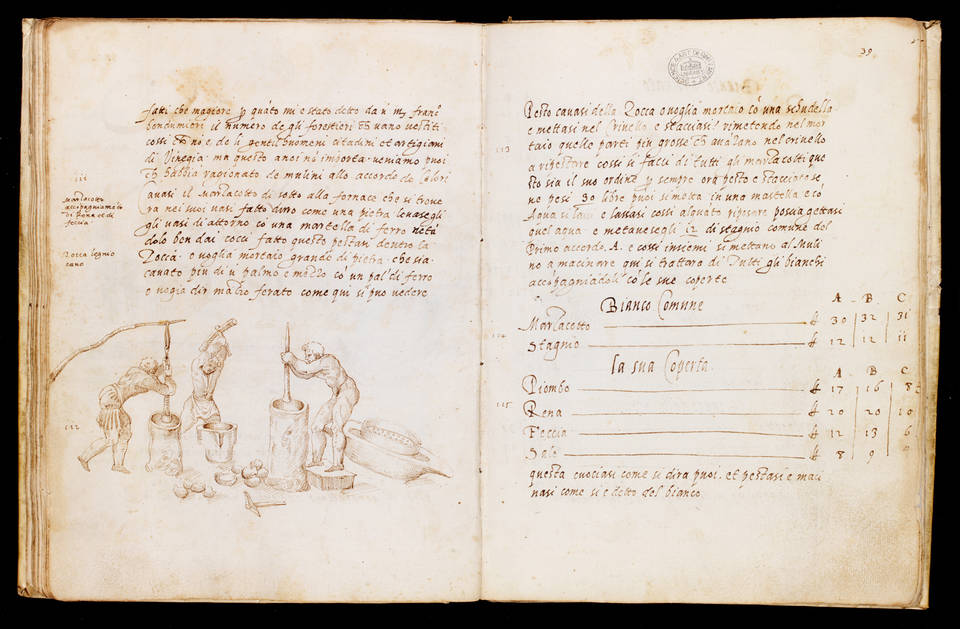 fatti che magiore ꝑ quāto mi e stato detto da ū Mꝫ franc̄o
bondumieri il numero de gli forestieri ch̄ vano vestiti
cossi ch̄ nō e, de li gentilhuomeni citadini et artigiani
di Vinegia. ma questo a noi nō importa. veniamo puoi
ch̄ habbia ragionato de mulini allo accordo de Colori
111
Marzacotto
di Renna et di
feccia
Cavasi il Marzacotto di sotto alla fornace che si trove
ra nei suoi vasi fatto duro come una pietra levasegli
gli vasi d'attorno cō una martella di ferro netā
dolo ben dai cocci fatto questo pestasi dentro la
Rocca legno
cavo
Rocca. o voglia mortaio grande di pietra. che sia
cavato piu di ū palmo e mezzo cō un pal di ferro
o vogia dir mazzo ferato come qui si puo vedere
112
39
Pesto cavasi della Rocca o voglia mortaio cō una schudella
e mettasi nel Crivello e stacciasi. rimetendo nel mor
113
taio quelle parti piu grosse ch̄ avāzano nel crivello
a ripestare cossi si facci di tutti gli marzacotti que
sto sia il suo ordine ꝑ sempre ora pesto e stacciato se
ne pesi 30 libre puoi si metta in una mastella e cō
Aqua si lava e lassasi cossi alquato riposare poscia gettasi
quel aqua e metavesegli 12 di stagnio comune del
Primo accordo. A. e cossi insiemi si mettano al Muli
no a macinare qui si trattara di Tutti gli bianchi
accōpagniādoli cō le sue coperte
Bianco Comune
A B C
Marzacotto 30 32 31
Stagnio 12 12 11
la sua Coperta.
A. B C
Piombo 17 16 8
115
Rena 20 20 10
Feccia 12 13 6
Sale 8 9
questa cuociasi come si dira puoi. et pestasi e maci
nasi come si e detto del bianco